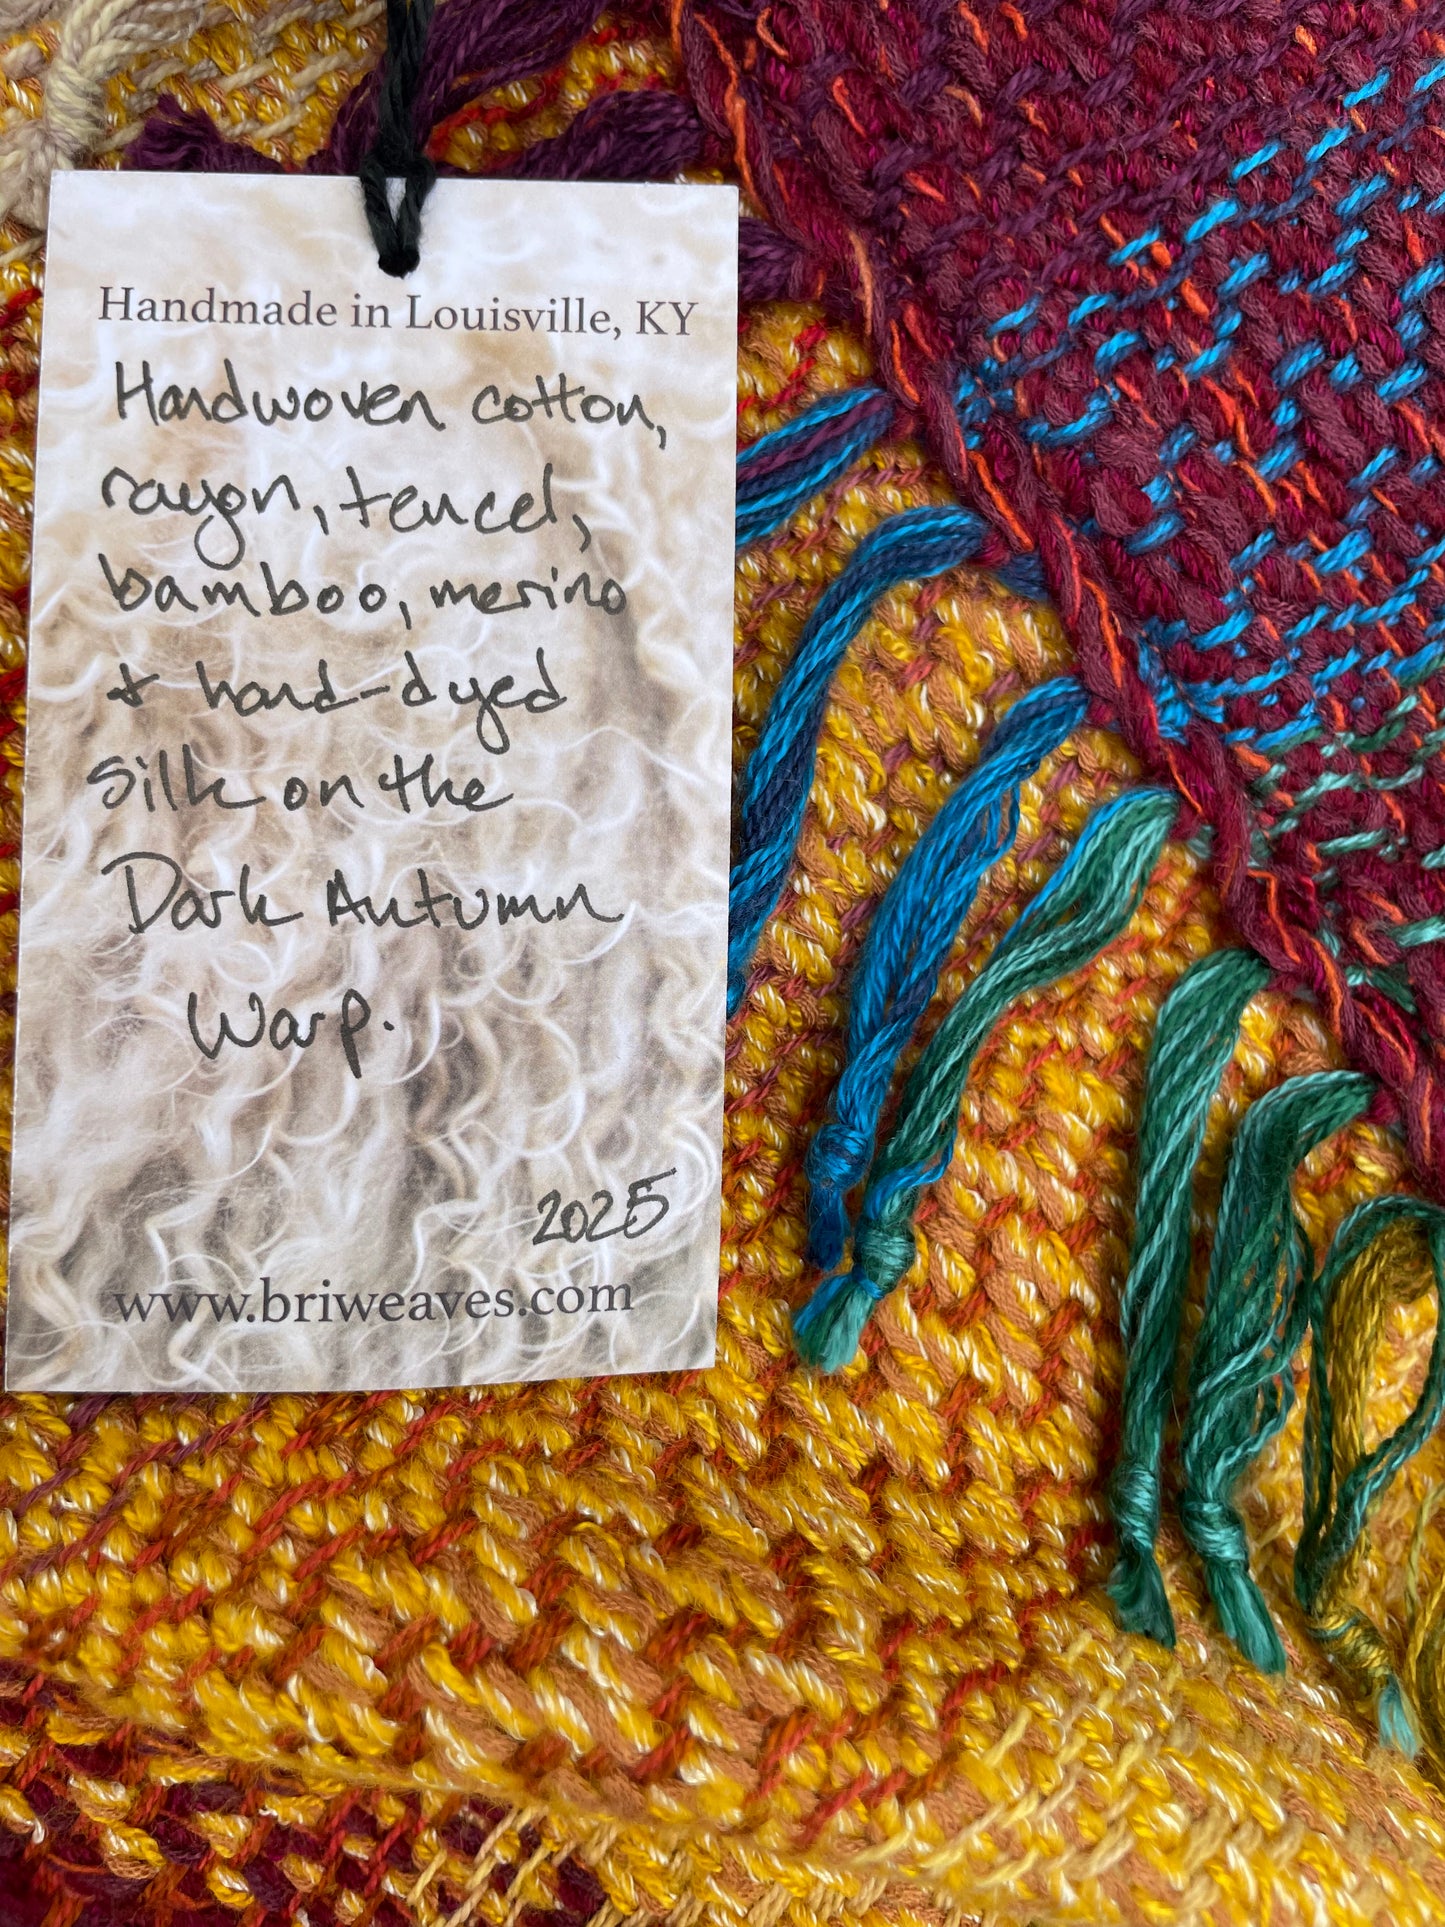 Handmade in Louisville, KY
Handwoven cotton,
rayon, tencel,
bamboo, merino
& hand-dyed
silk on the
Dark Autumn
Warp.
2025
www.briweaves.com